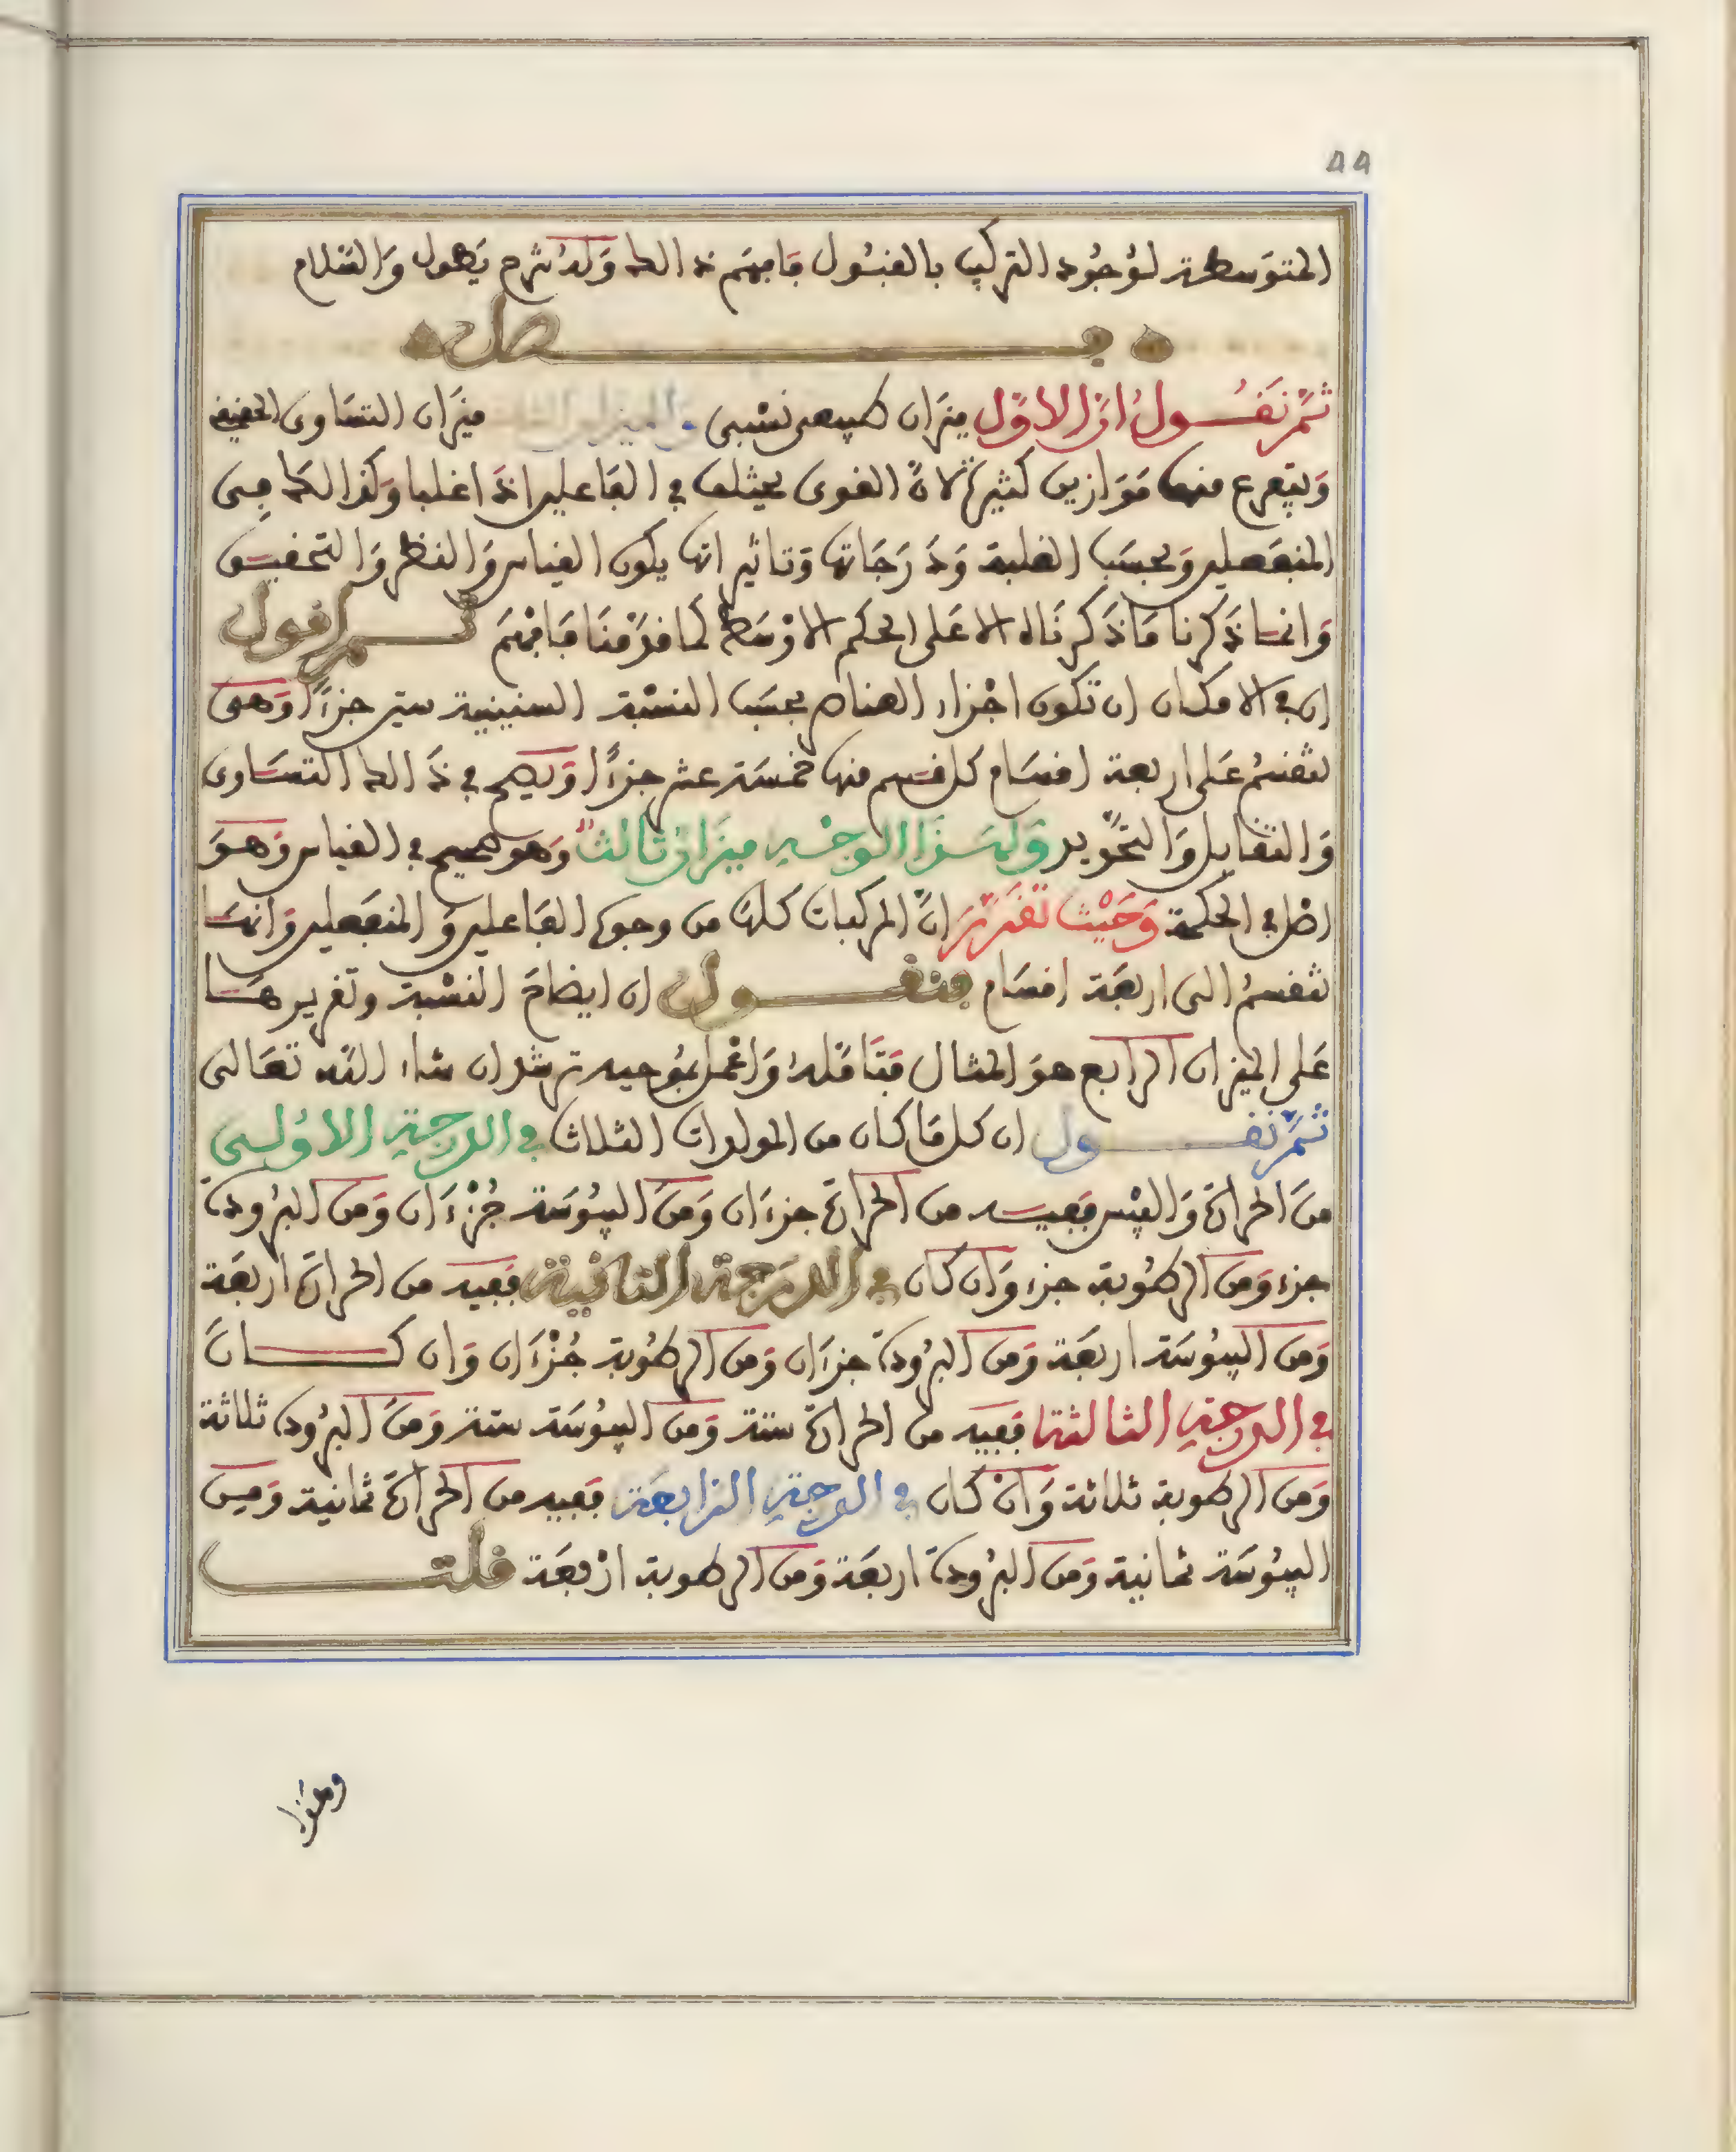 44
المتوسطة لوجود التركيب بالقبول فافهم ذالك وله شرح يطول والسلام
فصل
ثم نقول ان الاول ميزان طبيعى نسبى والميزان الثانى ميزان التساوى الحقيقى
ويتفرع منها موازين كثيرة لان القوى يختلف في الفاعلين اذا غلبا وكذالك فى
المنفعلين وبحسب الغلبة ودرجاتها وتاثيراتها يكون القياس والنظر والتحقيق
وانما ذكرنا ما ذكرناه الا على الحكم الاوسط كما قدمنا فافهم ثم اقول
ان في الامكان ان تكون اجزاء العناصر بحسب النسبة الستينية ستين جزءا وهى
تنقسم على اربعة اقسام كل قسم منها خمسة عشر جزءا ويصح في ذالك التساوى
والتقابل والتحويل ولهذا الوجه ميزان ثالث وهو صحيح في القياس وهو
اصل في الحكمة وحيث تقرر ان المركبات كلها من وجوه الفاعلين والمنفعلين وانها
تنقسم الى اربعة اقسام فنقول ان ايضاح النسبة وتقريرها
على الميزان الرابع هو المثال فتامله واعمل بموجبه ترشد ان شاء الله تعالى
ثم نقول ان كل ما كان من المولدات الثلاث في الدرجة الاولى
من الحرارة واليبس ففيه من الحرارة جزءان ومن اليبوسة جزءان ومن البرودة
جزء ومن الرطوبة جزء وان كان في الدرجة الثانية ففيه من الحرارة اربعة
ومن اليبوسة اربعة ومن البرودة جزءان ومن الرطوبة جزءان وان كان
في الدرجة الثالثة ففيه من الحرارة ستة ومن اليبوسة ستة ومن البرودة ثلاثة
ومن الرطوبة ثلاثة وان كان في الدرجة الرابعة ففيه من الحرارة ثمانية ومن
اليبوسة ثمانية ومن البرودة اربعة ومن الرطوبة اربعة قلت
وهذا